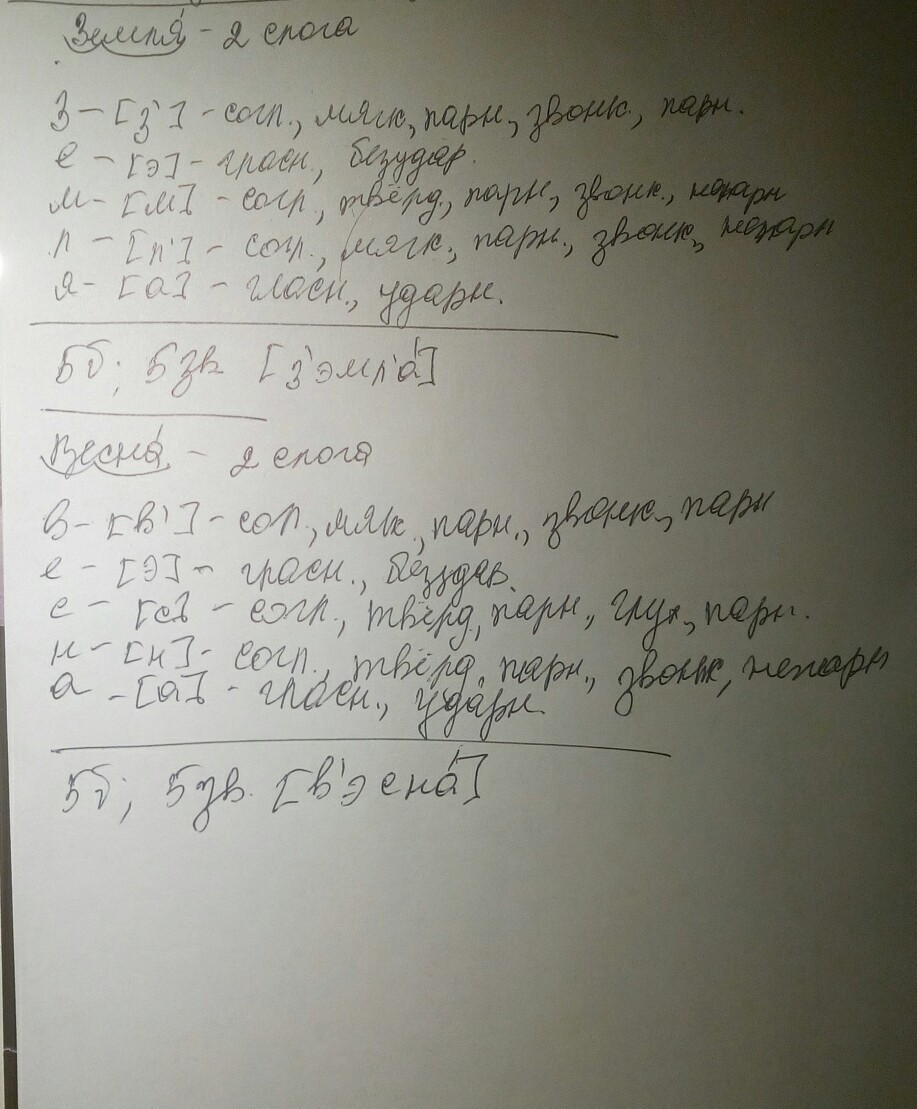 Земля́ - 2 слога
З - [з'] - согл., мягк, парн, звонк., парн.
е - [э] - гласн., безудар.
м - [м] - согл, твёрд, парн, звонк., непарн
л - [л'] - согл., мягк, парн., звонк, непарн
я - [а] - гласн., ударн.
5б; 5зв [з'эмл'а́]
Весна́ - 2 слога
в - [в'] - согл, мягк, парн., звонк., парн
е - [э] - гласн., безудар.
с - [с] - согл., твёрд, парн, глух, парн.
н - [н] - согл., твёрд, парн., звонк, непарн
а - [а] - гласн., ударн.
5б; 5зв. [в'эсна́]